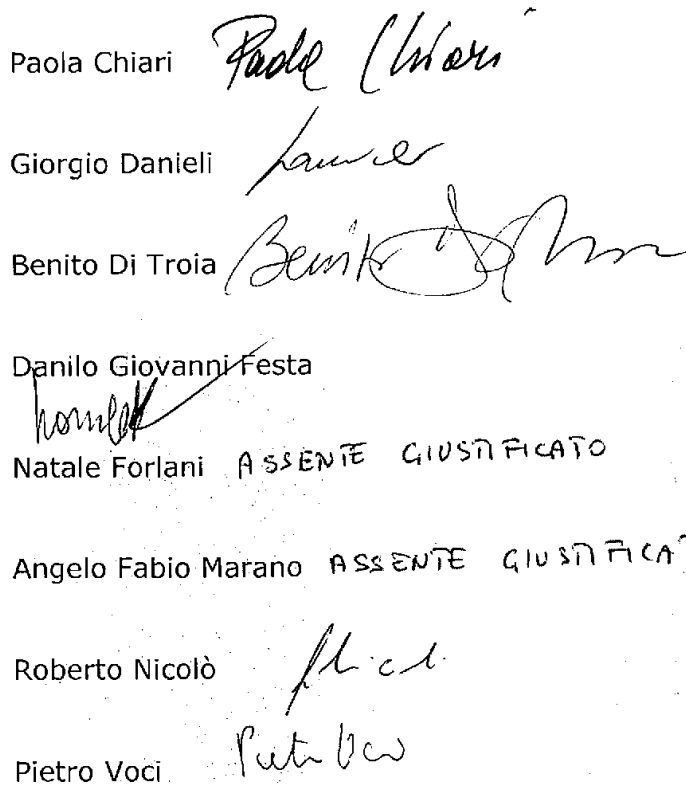 Paola Chiari Paola Chiari
Giorgio Danieli
Benito Di Troia Benito
Danilo Giovanni Festa
Natale Forlani ASSENTE GIUSTIFICATO
Angelo Fabio Marano ASSENTE GIUSTIFICA
Roberto Nicolò
Pietro Voci Pietro Voci